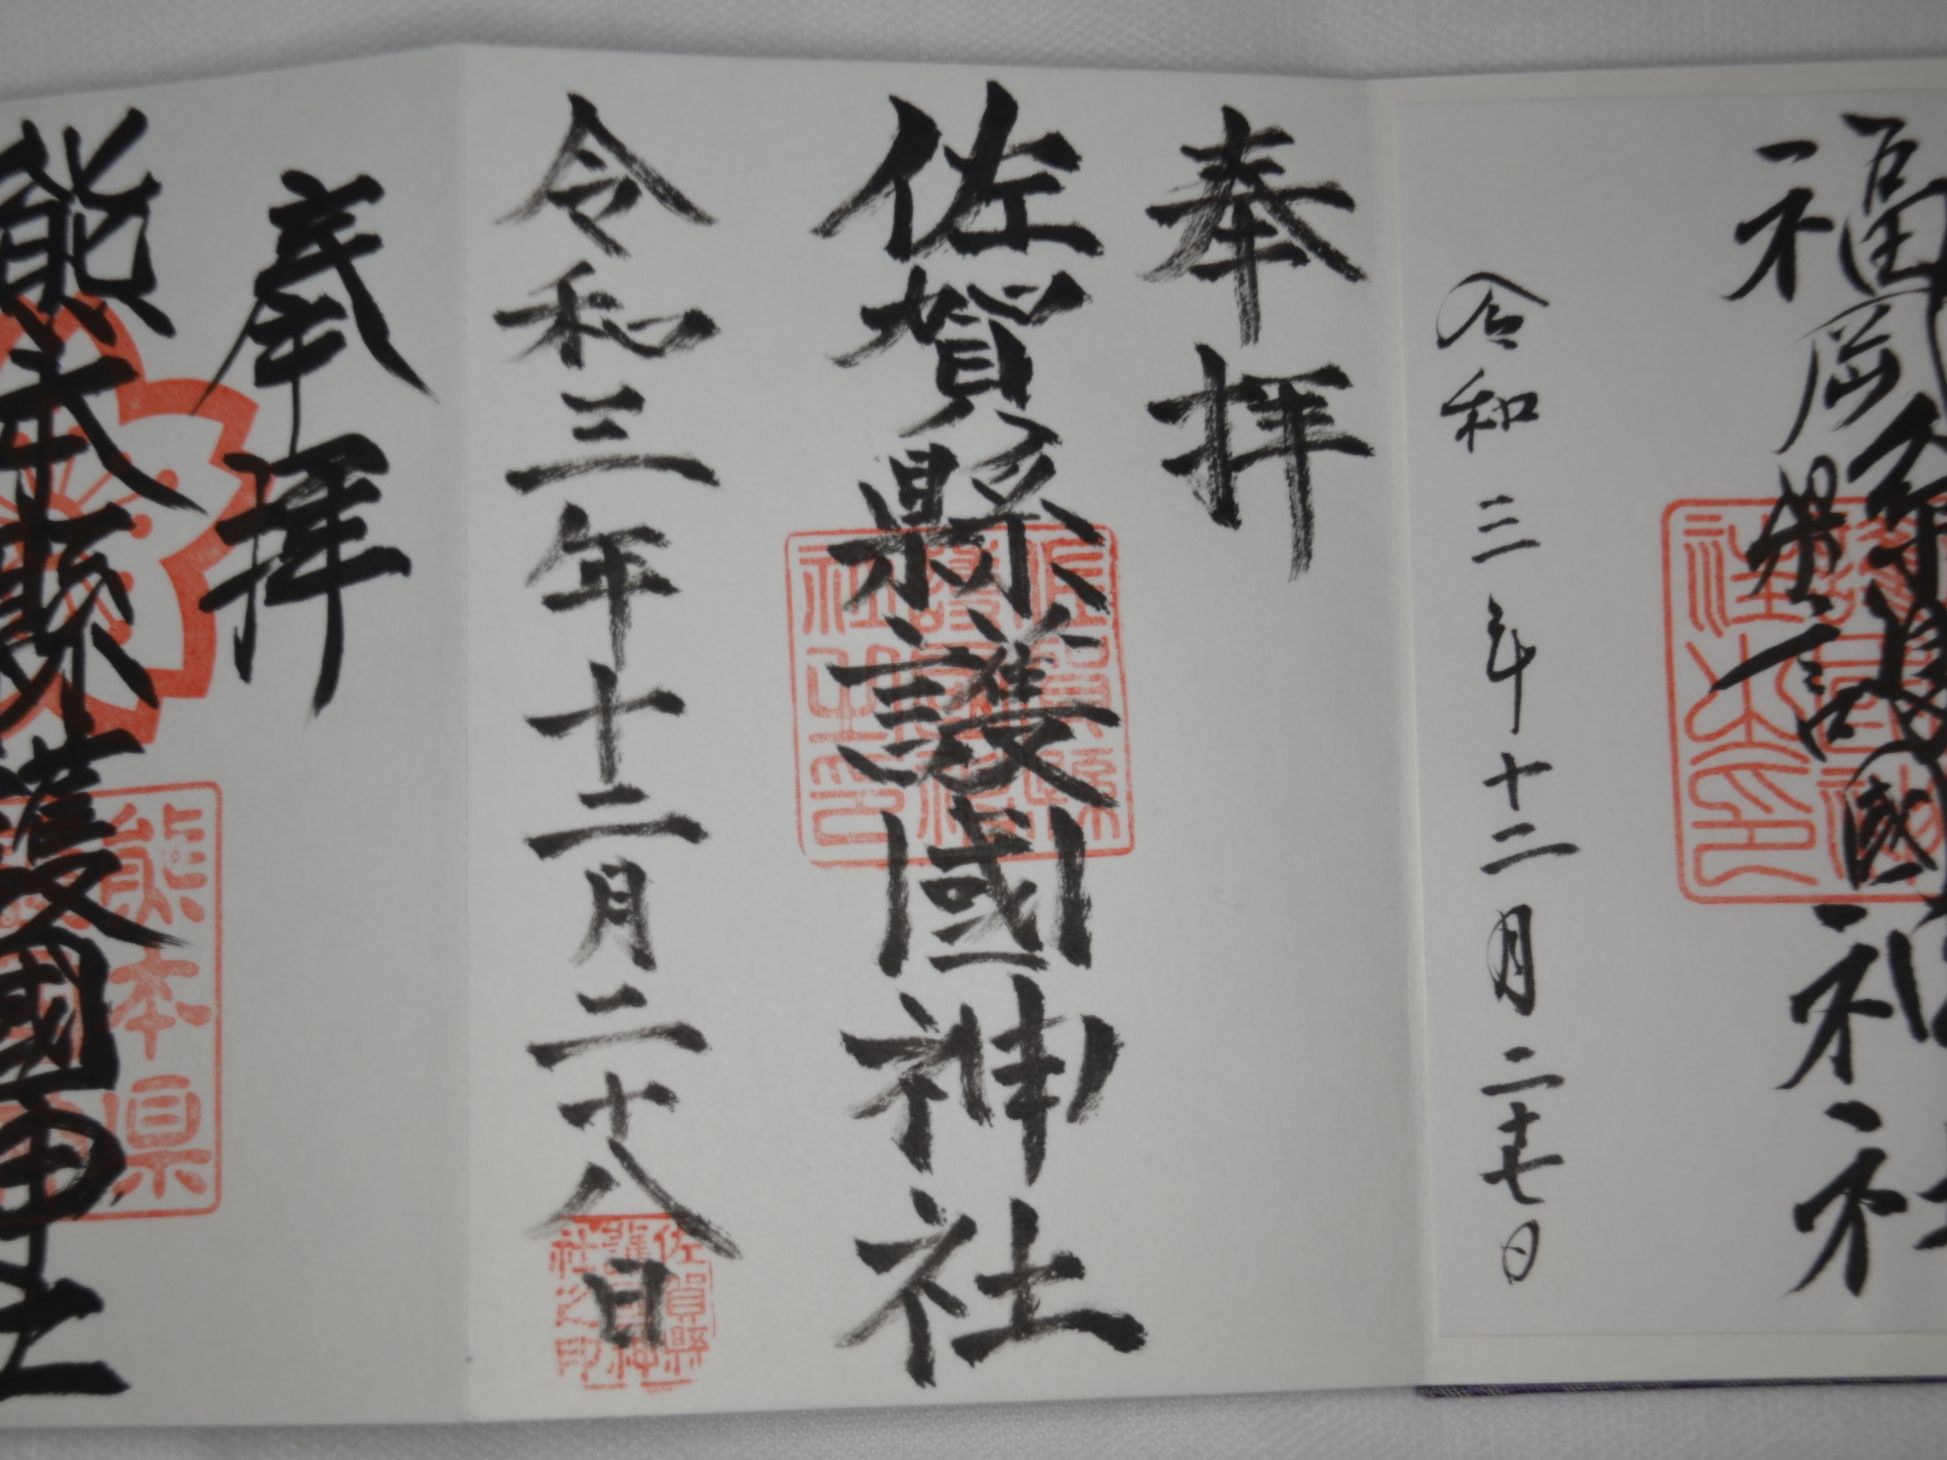 福岡縣護國神社
令和三年十二月二十七日
奉拝
佐賀縣護國神社
令和三年十二月二十八日
佐賀縣
護國神
社之印
奉拝
熊本縣護國神社
熊本県